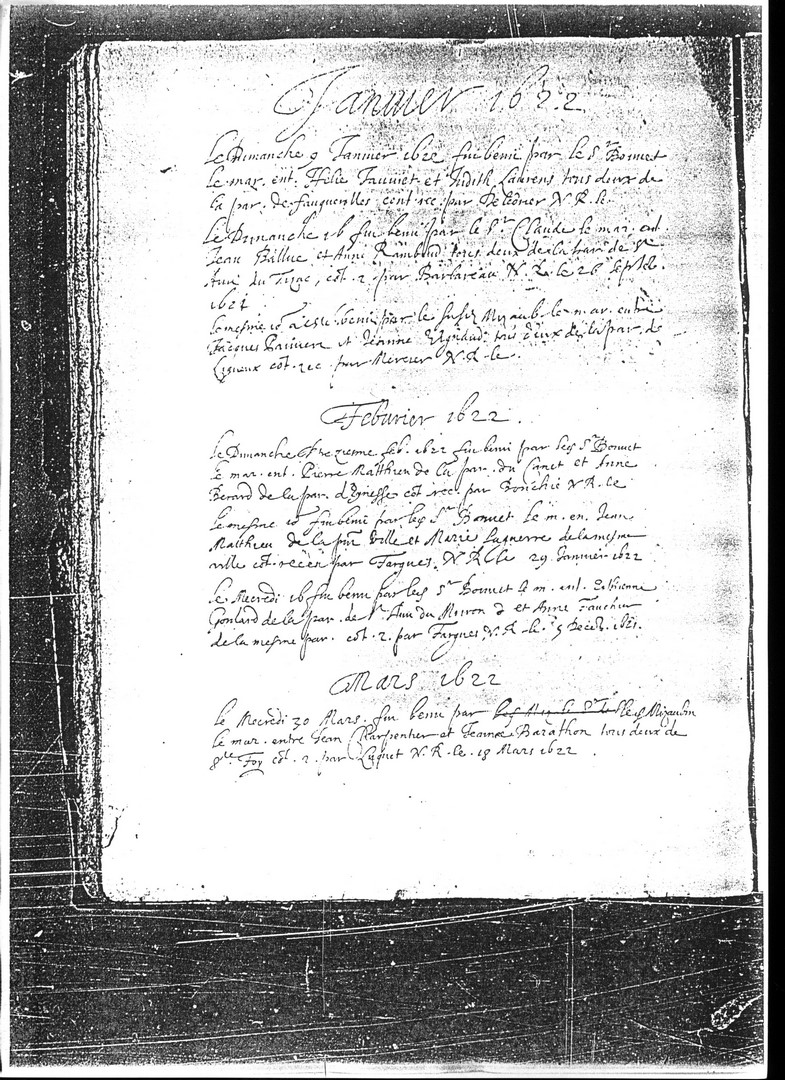 Januier 1622
Le Dimanche 9 Januier 1622 fut beni par le Sr Bonuet
le mar. ent. Helie Fauuiet et Judith Laurens tous deux de
la par. de fauguerolles cont. rec. par N. R. le
Le Dimanche 16 fut beni par le Sr Claude le mar. ent
Jean Ballue et Anne Rambaud tous deux de la par. de St
du Tizac, cot. 2. par Barbareau N. R. le 26 Sept.
1621
le mesme io a este beni par le susd Mizaub. le mar. entre
Jacques et Jeanne tous deux de la par. de
Ligueux cot. rec par Mercier N. R. le
Feburier 1622
Le Dimanche feb. 1622 fut beni par led Sr Bonuet
le mar. ent. Pierre Matthieu de la par. du Canet et Anne
Berard de la par. d'Eynesse cot rec. par N R. le
Le mesme io fut beni par led Sr Bonuet le m. en. Jean
Matthieu de la pnt Ville et Marie Laguerre de la mesme
ville cot. receu par Fargues N. R. le 29 Januier 1622
Le Mecredi 16 fut beni par led Sr Bonuet le m. ent. Estienne
Goulard de la par. de St du et Anne Faucher
de la mesme par. cot. 2. par Fargues N. R. le. 5 Decēb. 1621.
Mars 1622
Le Mecredi 30 Mars. fut beni par led Mizaubin
le mar. entre Jean Charpentier et Jeanne Barathon tous deux de
Ste Foy cōt. 2. par Luguet N. R. le. 18 Mars 1622